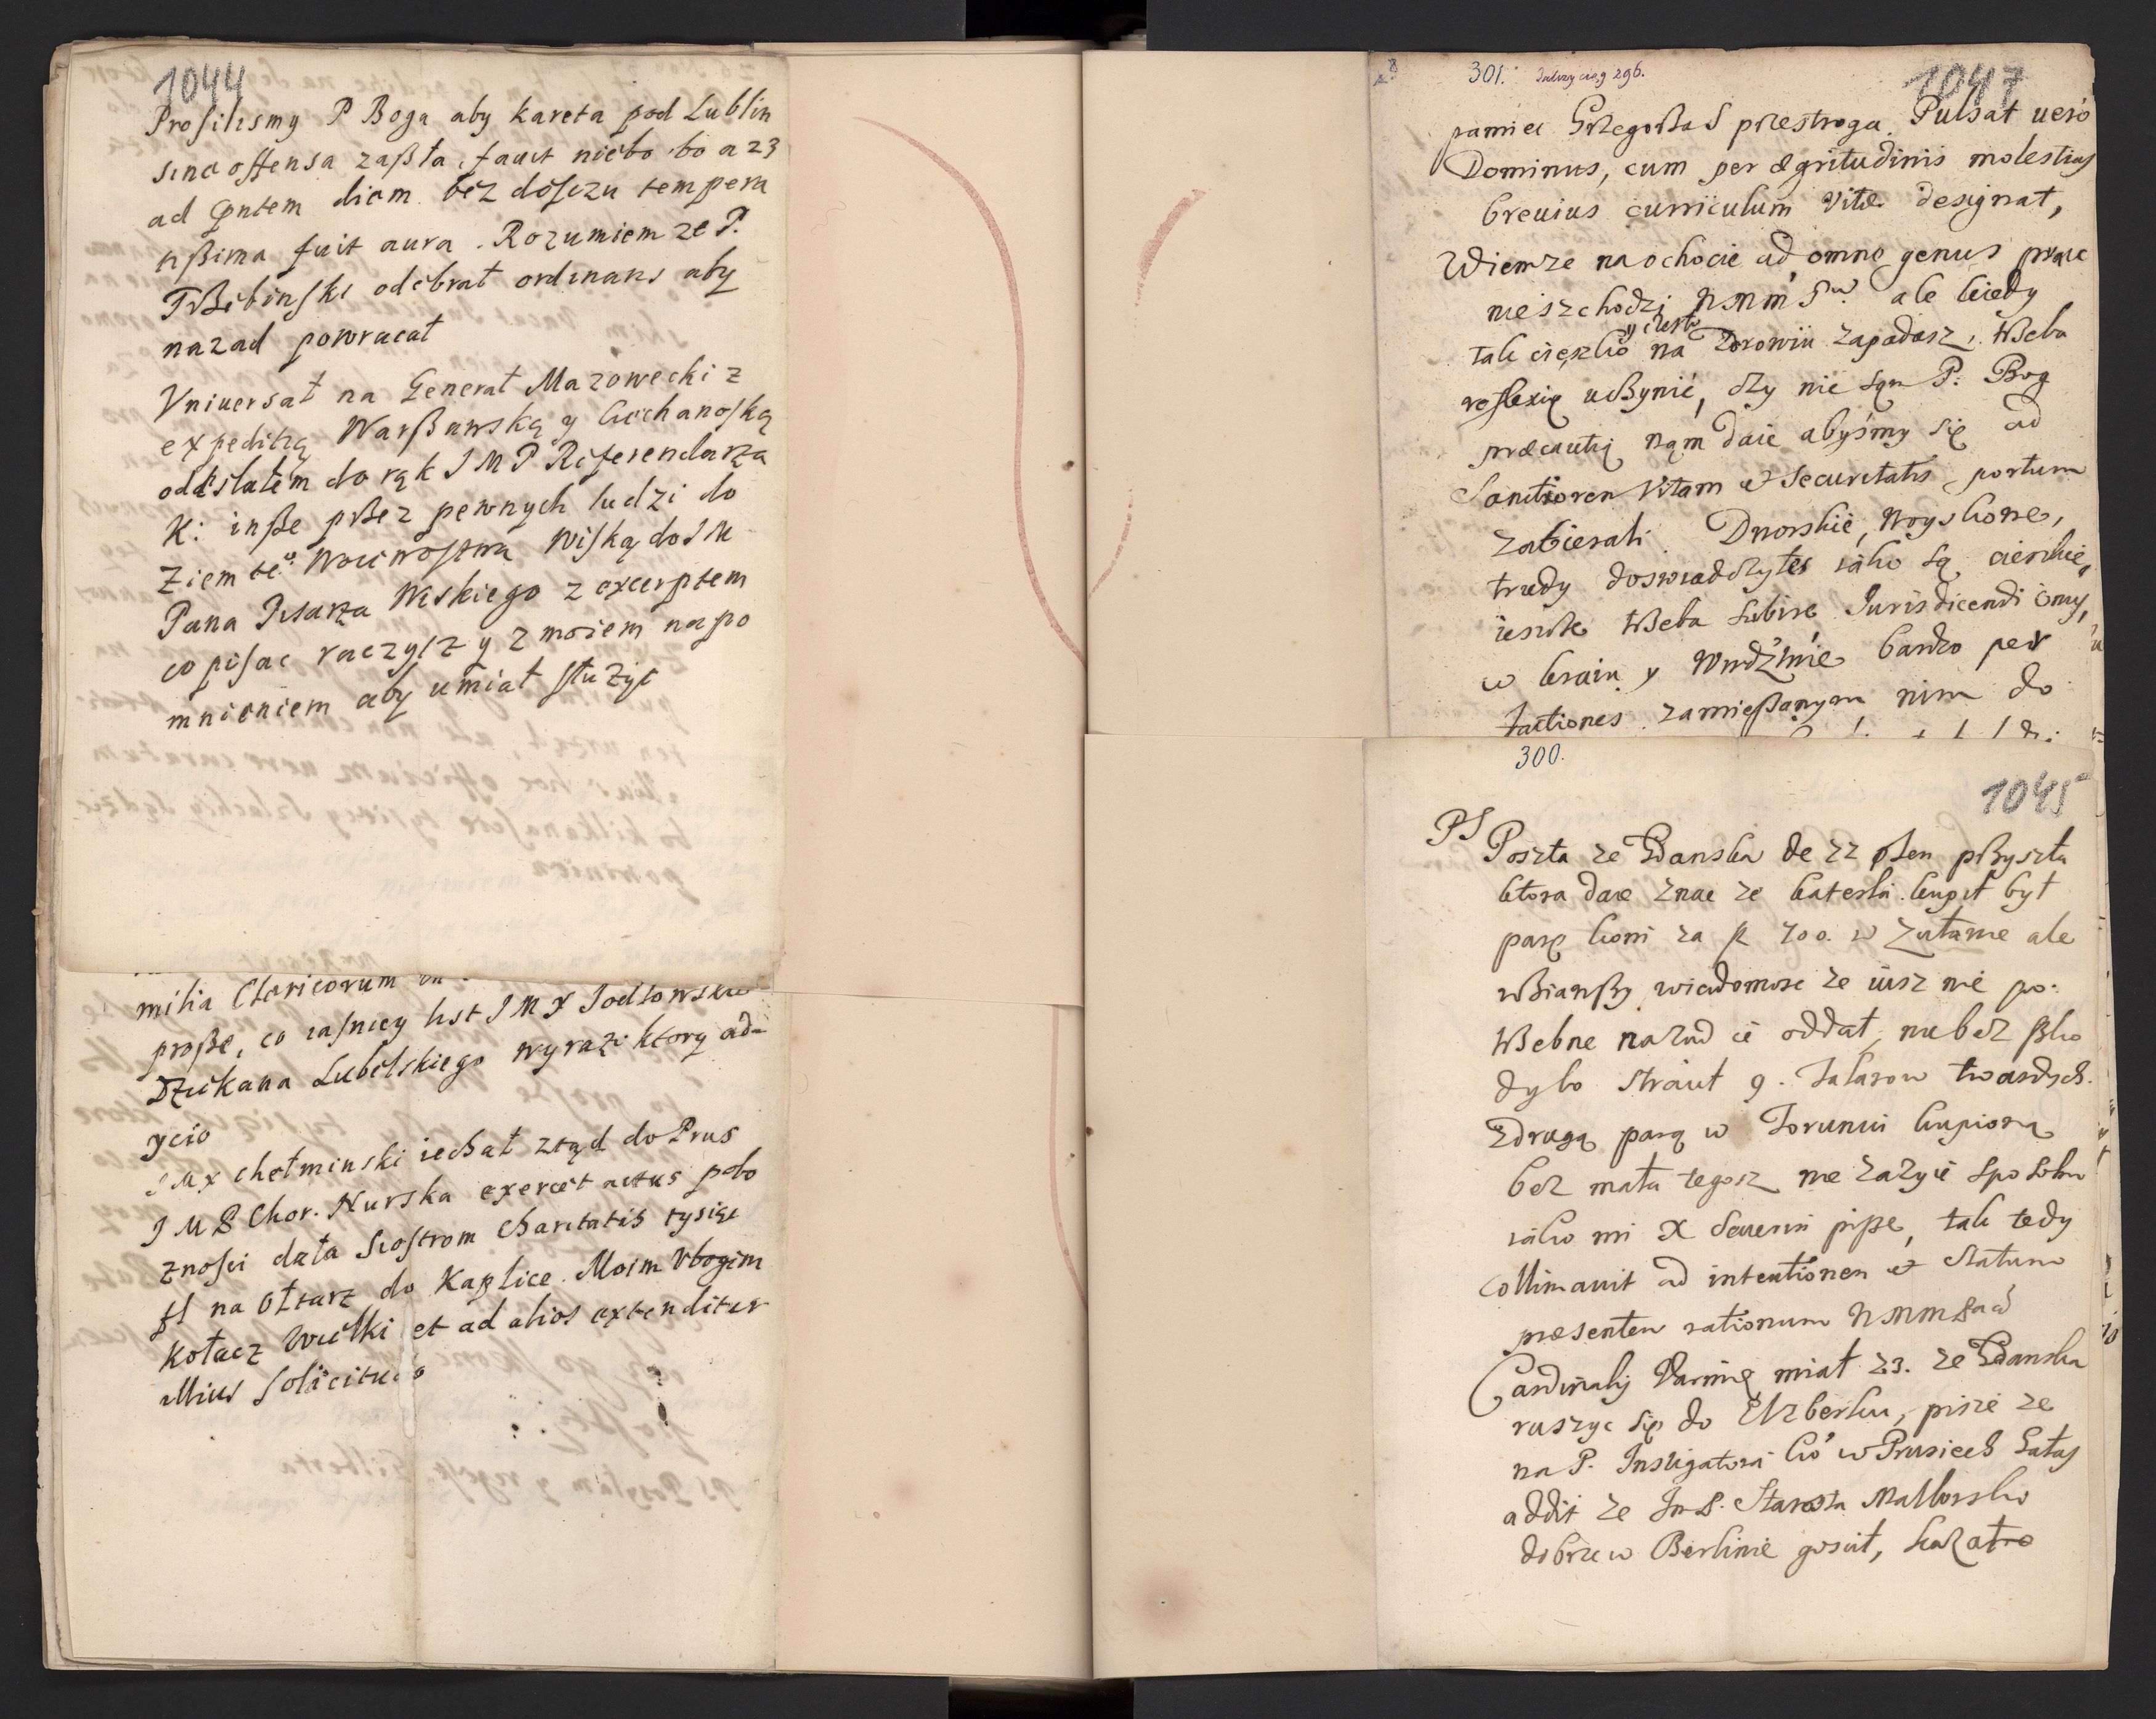 1044
Prosilismy P Boga aby kareta pod Lublin
sine offensa zaßła, fauit niebo bo a 23
ad pntem diem bez dosczu tempera
tißima fuit aura. Rozumiem ze P.
Trßebinski odebrał ordinans aby
nazad powracał
Vniuersał na Generał Mazowecki z
expeditią Warßawską y Ciechanoską
odesłałem do rąk J M P Referendarza
K: inße przez pewnych ludzi do
Ziem te Woiewostwa Wiską do J M
Pana Pisarza Wiskiego z excerptem
co pisac raczysz y z moiem napo
mnieniem aby umiał służyc
milia Clericorum
proße, co iasniey list J M X Jodłowskie
Dziekana Lubelskiego wyrazi ktory ad-
ycio
J M X chełminski iechał ztąd do Prus
J M P Chor. Nurska exercet actus pobo
znosci dała Siostrom Charitatis tysiąc
fl na Ołtarz do Kaplice. Moim Vbogim
Kołacz Wielki et ad alios extenditur
illius Solicitudo
301. 296.
1047
pamiec Grzegorza S przestroga. Pulsat uero
Dominus, cum per ægritudinis molestias
breuius curriculum vitæ designat,
Wiem ze na ochocie ad omne genus prace
nie szchodzi WMM Pw. ale kiedy
y często
tak cięszko na Zdrowiu zapadasz, trzeba
reflexię uczynić, czy nie sam P. Bog
præcautię nąm daie abyśmy się ad
Sanctiorem vitam et Securitatis portum
zabierali. Dworskie, woyskowe,
trudy doswiadczyłes iako są cieszkie,
ieszcze trzeba subire Jurisdicendi onus,
w kraiu y Wudżtwie bardzo per
factiones zamießanym nim do
300.
1045
PS Poszta ze Gdanska de 22 pten przyszła
ktora daie znac ze kateski kupił był
parę koni za fl 700. w Zuławie ale
wziąwßy wiadomosc ze iusz nie po-
trzebne nazad ie oddał, nie bez ßko
dy bo stracił 9. Talarow twardych.
Zdrugą parą w Toruniu kupioną
bez mała tegosz nie zazyie sposobu
iako mi X Seuerin piße, tak tedy
Collimauit ad intentionem et Statum
præsentem rationum WMM Pana
Cardinalis Varmię miał 23. ze Gdanska
ruszyc się do Elzberku, pisze ze
na P. Instigatora Ko w Prusiech hałas
addit ze Jm P. Starosta Malborsko
dobrze w Berlinie goscił,